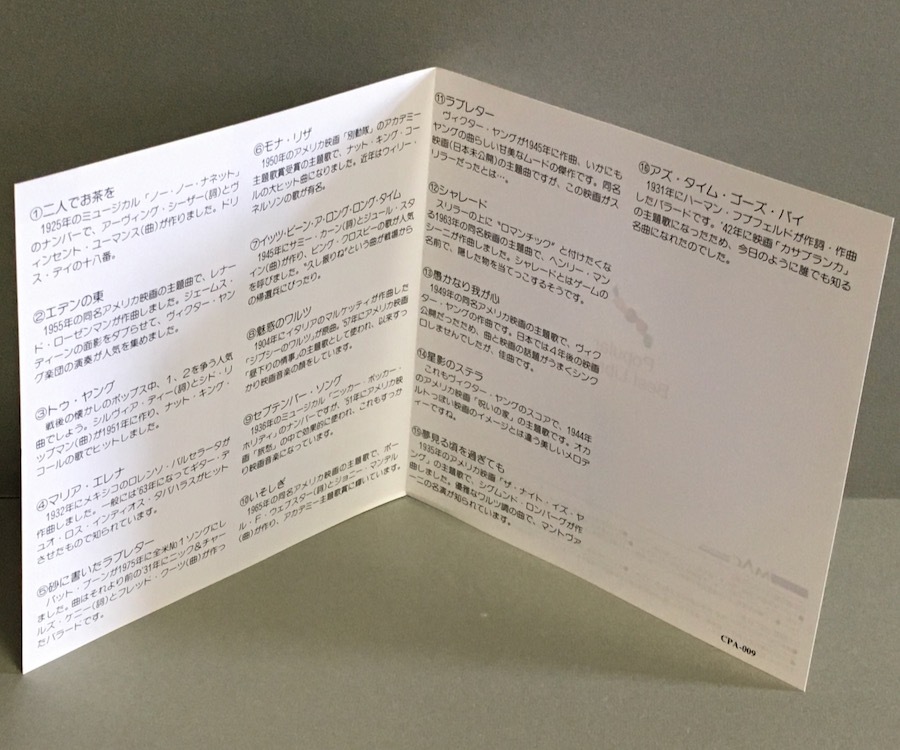 ①二人でお茶を
1925年のミュージカル「ノー・ノー・ナネット」
のナンバーで、アーヴィング・シーザー(詞)とヴ
ィンセント・ユーマンス(曲)が作りました。ドリ
ス・デイの十八番。
②エデンの東
1955年の同名アメリカ映画の主題曲で、レナー
ド・ローゼンマンが作曲しました。ジェームス・
ディーンの面影をダブらせて、ヴィクター・ヤン
グ楽団の演奏が人気を集めました。
③トゥ・ヤング
戦後の懐かしのポップス中、1、2を争う人気
曲でしょう。シルヴィア・ディー(詞)とシド・リ
ップマン(曲)が1951年に作り、ナット・キング・
コールの歌でヒットしました。
④マリア・エレナ
1932年にメキシコのロレンソ・バルセラータが
作曲しました。一般には'63年になってギター・デ
ュオ・ロス・インディオス・タバハラスがヒット
させたもので知られています。
⑤砂に書いたラブレター
パット・ブーンが1975年に全米No1ソングにし
ました。曲はそれより前の'31年にニック&チャー
ルズ・ケニー(詞)とフレッド・クーツ(曲)が作っ
たバラードです。
⑥モナ・リザ
1950年のアメリカ映画「別動隊」のアカデミー
主題歌賞受賞の主題歌で、ナット・キング・コー
ルの大ヒット曲になりました。近年はウィリー・
ネルソンの歌が有名。
⑦イッツ・ビーン・ア・ロング・ロング・タイム
1945年にサミー・カーン(詞)とジュール・スタ
イン(曲)が作り、ビング・クロスビーの歌が人気
を呼びました。"久し振りね"という曲が戦線から
の帰還兵にぴったり。
⑧魅惑のワルツ
1904年にイタリアのマルケッティが作曲した
「ジプシーのワルツ」が原曲。'57年にアメリカ映画
「昼下りの情事」の主題歌として使われ、以来すっ
かり映画音楽の顔をしています。
⑨セプテンバー・ソング
1938年のミュージカル「ニッカー・ボッカー・
ホリディ」のナンバーですが、'51年にアメリカ映
画「旅愁」の中で効果的に使われ、これもすっか
り映画音楽になっています。
⑩いそしぎ
1965年の同名アメリカ映画の主題歌で、ポー
ル・F・ウェブスター(詞)とジョニー・マンデル
(曲)が作り、アカデミー主題歌賞に輝いています。
⑪ラブレター
ヴィクター・ヤングが1945年に作曲、いかにも
ヤングの曲らしい甘美なムードの傑作です。同名
映画(日本未公開)の主題曲ですが、この映画がス
リラーだったとは…。
⑫シャレード
スリラーの上に"ロマンチック"と付けたくな
る1963年の同名映画の主題曲で、ヘンリー・マン
シーニが作曲しました。シャレードとはゲームの
名前で、隠した物を当てっこするそうです。
⑬愚かなり我が心
1949年の同名アメリカ映画の主題歌で、ヴィク
ター・ヤングの作曲です。日本では4年後の映画
公開だったため、曲と映画の話題がうまくシンク
ロしませんでしたが、佳曲です。
⑭星影のステラ
これもヴィクター・ヤングのスコアで、1944年
のアメリカ映画「呪いの家」の主題歌です。オカ
ルトっぽい映画のイメージとは違う美しいメロデ
ィーですね。
⑮夢見る頃を過ぎても
1935年のアメリカ映画「ザ・ナイト・イズ・ヤ
ング」の主題歌で、シグムンド・ロンバーグが作
曲しました。優雅なワルツ調の曲で、マントヴァ
ーニの名演が知られています。
⑯アズ・タイム・ゴーズ・バイ
1931年にハーマン・フプフェルドが作詞・作曲
したバラードです。'42年に映画「カサブランカ」
の主題歌になったため、今日のように誰でも知る
名曲になれたのでした。
CPA-009